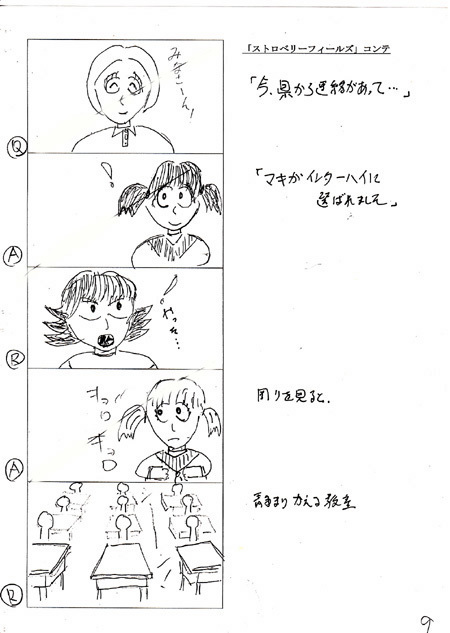 「ストロベリーフィールズ」コンテ
みなさーん!
「今、県から連絡があって…」
B
!
「マキがインターハイに
選ばれました」
A
!
やった…
B
キョロ
キョロ
周りを見ると、
A
静まりかえる教室
B
9